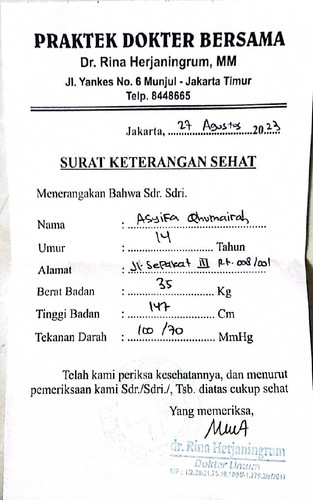 PRAKTEK DOKTER BERSAMA
Dr. Rina Herjaningrum, MM
Jl. Yankes No. 6 Munjul - Jakarta Timur
Telp. 8448665
Jakarta, 27 Agustus 2023
SURAT KETERANGAN SEHAT
Menerangakan Bahwa Sdr. Sdri.
Nama : Asyifa Qhumairah
Umur : 14 Tahun
Alamat : Jl. Sepakat III Rt. 008/001
Berat Badan : 35 Kg
Tinggi Badan : 147 Cm
Tekanan Darah : 100/70 MmHg
Telah kami periksa kesehatannya, dan menurut
pemeriksaan kami Sdr./Sdri./, Tsb. diatas cukup sehat
Yang memeriksa,
dr. Rina Herjaningrum
Dokter Umum